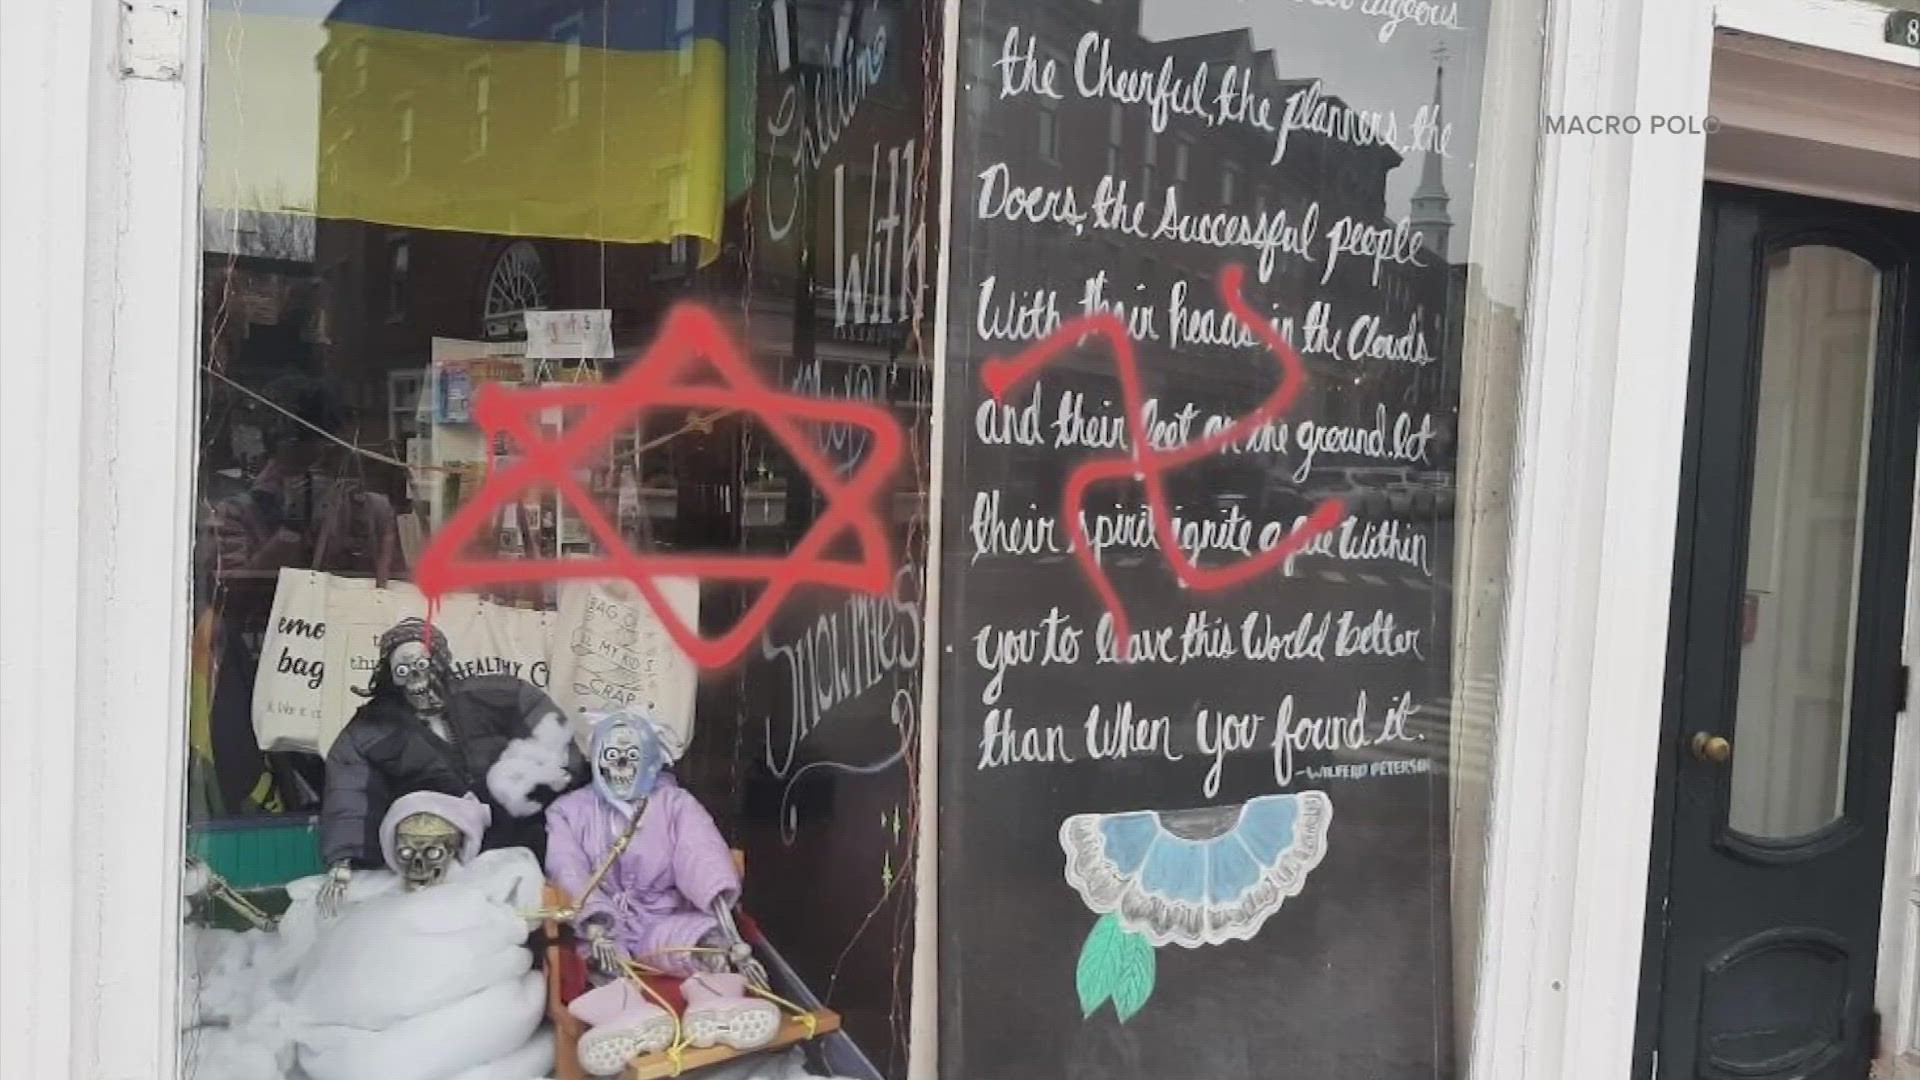 MACRO POLO
the Cheerful, the planners, the
Doers, the successful people
With their heads in the Clouds
and their feet on the ground. let
their spirit ignite a fire within
you to leave this World better
than When you found it.
-WILFERD PETERSON
Chillin'
With
my
Snowmies
emo
bag
HEALTHY
BAG OF
MY KID'S
CRAP
8